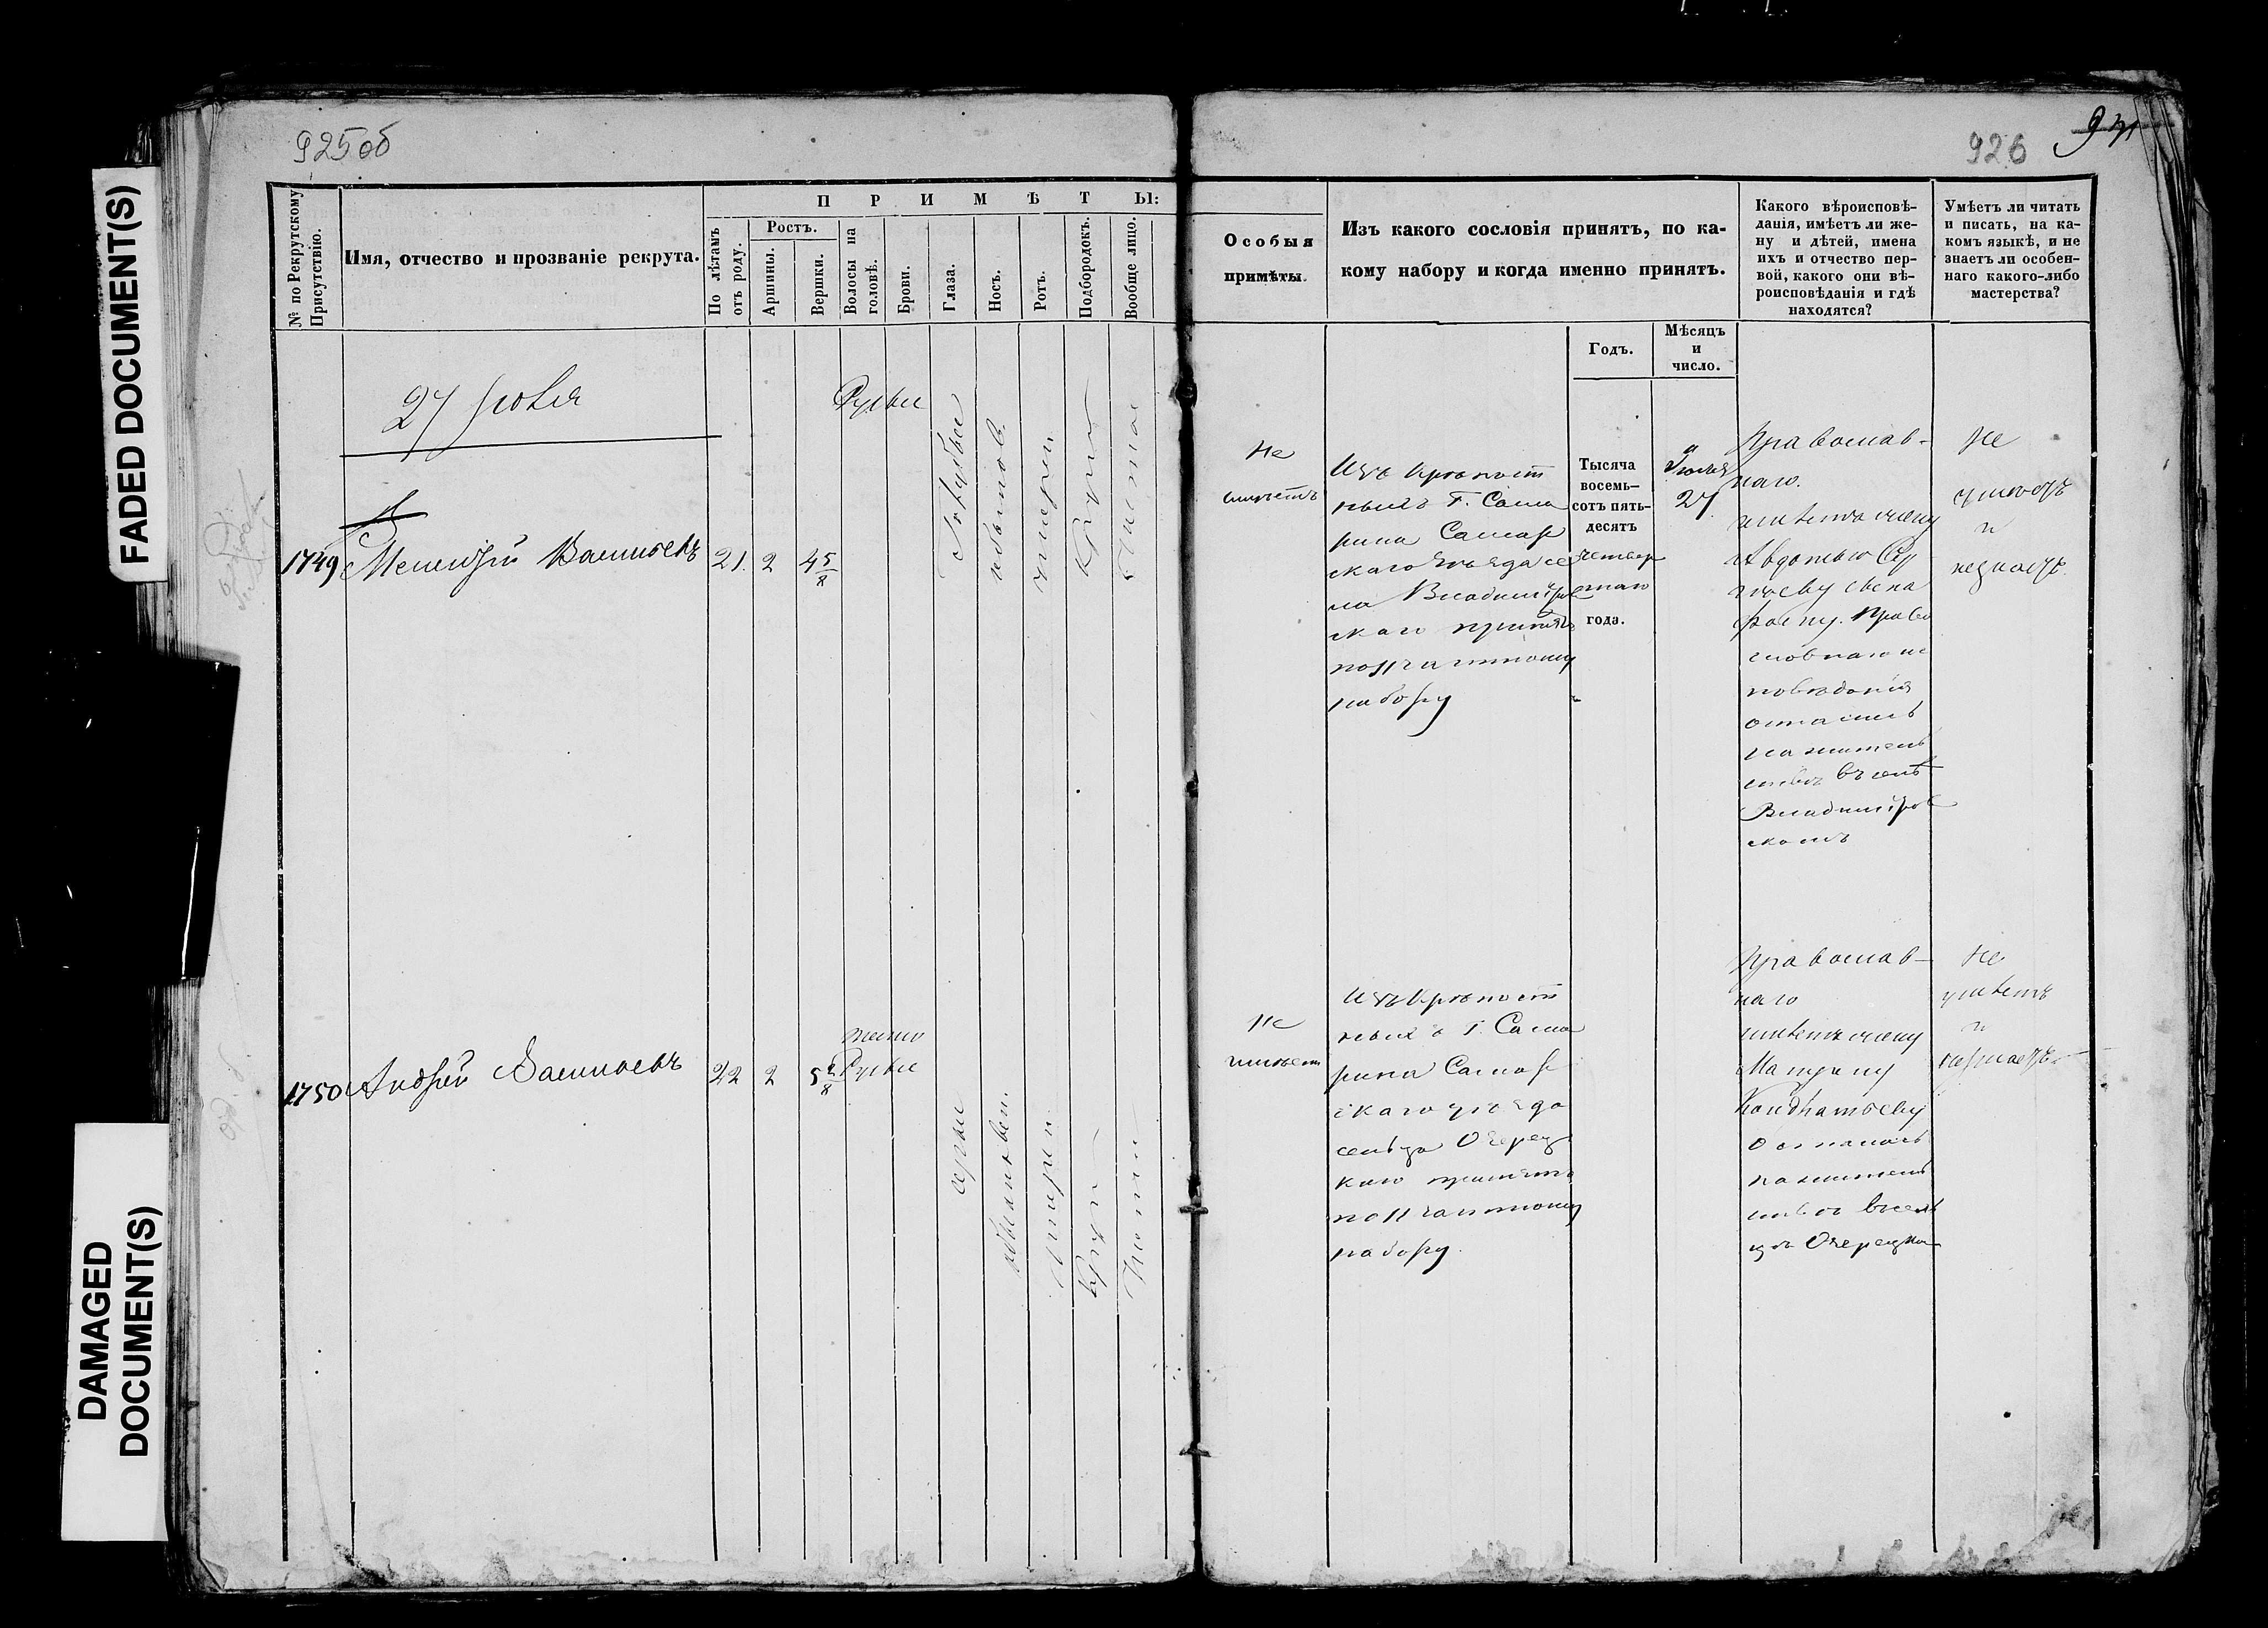 FADED DOCUMENT(S)
DAMAGED
DOCUMENT(S)
925об
926
931
№ по Рекрутскому
Присутствію.
Имя, отчество и прозваніе рекрута.
П Р И М Ѣ Т Ы:
По лѣтамъ
отъ роду.
Ростъ.
Аршины.
Вершки.
Волосы на
головѣ.
Брови.
Глаза.
Носъ.
Ротъ.
Подбородокъ.
Вообще лицо.
Особыя
примѣты.
Изъ какого сословія принятъ, по ка-
кому набору и когда именно принятъ.
Годъ.
Мѣсяцъ
и
число.
Какого вѣроисповѣ-
данія, имѣетъ ли же-
ну и дѣтей, имена
ихъ и отчество пер-
вой, какого они вѣ-
роисповѣданія и гдѣ
находятся?
Умѣетъ ли читать
и писать, на ка-
комъ языкѣ, и не
знаетъ ли особен-
наго какого-либо
мастерства?
27 Іюля
1749
Васильевъ
21.
2
4 5/8
Русые
Голубые
Круглой
Чистое
Не
имѣетъ
Изъ крѣпост
ныхъ Г. Сама
рина Самар
скаго уѣзда се
ла Владимиров
скаго принятъ
по частному
набору
Тысяча
восемь-
сотъ пять-
десятъ
четвер
таго
года.
Іюля
27
Православ-
наго.
имѣетъ жену
Авдотью Сер
гѣеву
Право
славнаго ис
повѣданія
остались
на житель
ствѣ въ селѣ
Владиміров
скомъ
Не
умѣетъ
и
незнаетъ.
1750
Андрей Васильевъ
22
2
5 2/8
темно
Русые
серые
обыкновен.
Не
имѣетъ
Изъ крѣпост
ныхъ Г. Сама
рина Самар
скаго уѣзда
сельца
принятъ
по частному
набору.
Православ-
наго
имѣетъ жену
Матрену
Кондратьеву
осталась
на житель
ствѣ въ сель
цѣ
Не
умѣетъ
и
незнаетъ